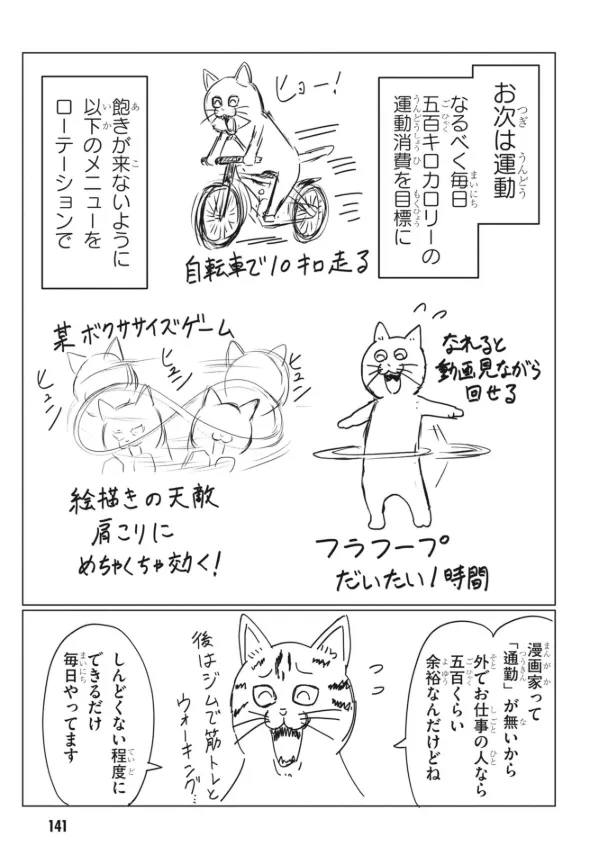 お次は運動
なるべく毎日
五百キロカロリーの
運動消費を目標に
ヒョー！
飽きが来ないように
以下のメニューを
ローテーションで
自転車で10キロ走る
なれると
動画見ながら
回せる
フラフープ
だいたい1時間
某ボクササイズゲーム
ヒュン
ヒュン
ヒュン
絵描きの天敵
肩こりに
めちゃくちゃ効く！
漫画家って
「通勤」が無いから
外でお仕事の人なら
五百くらい
余裕なんだけどね
後はジムで筋トレと
ウォーキング…
しんどくない程度に
できるだけ
毎日やってます
141